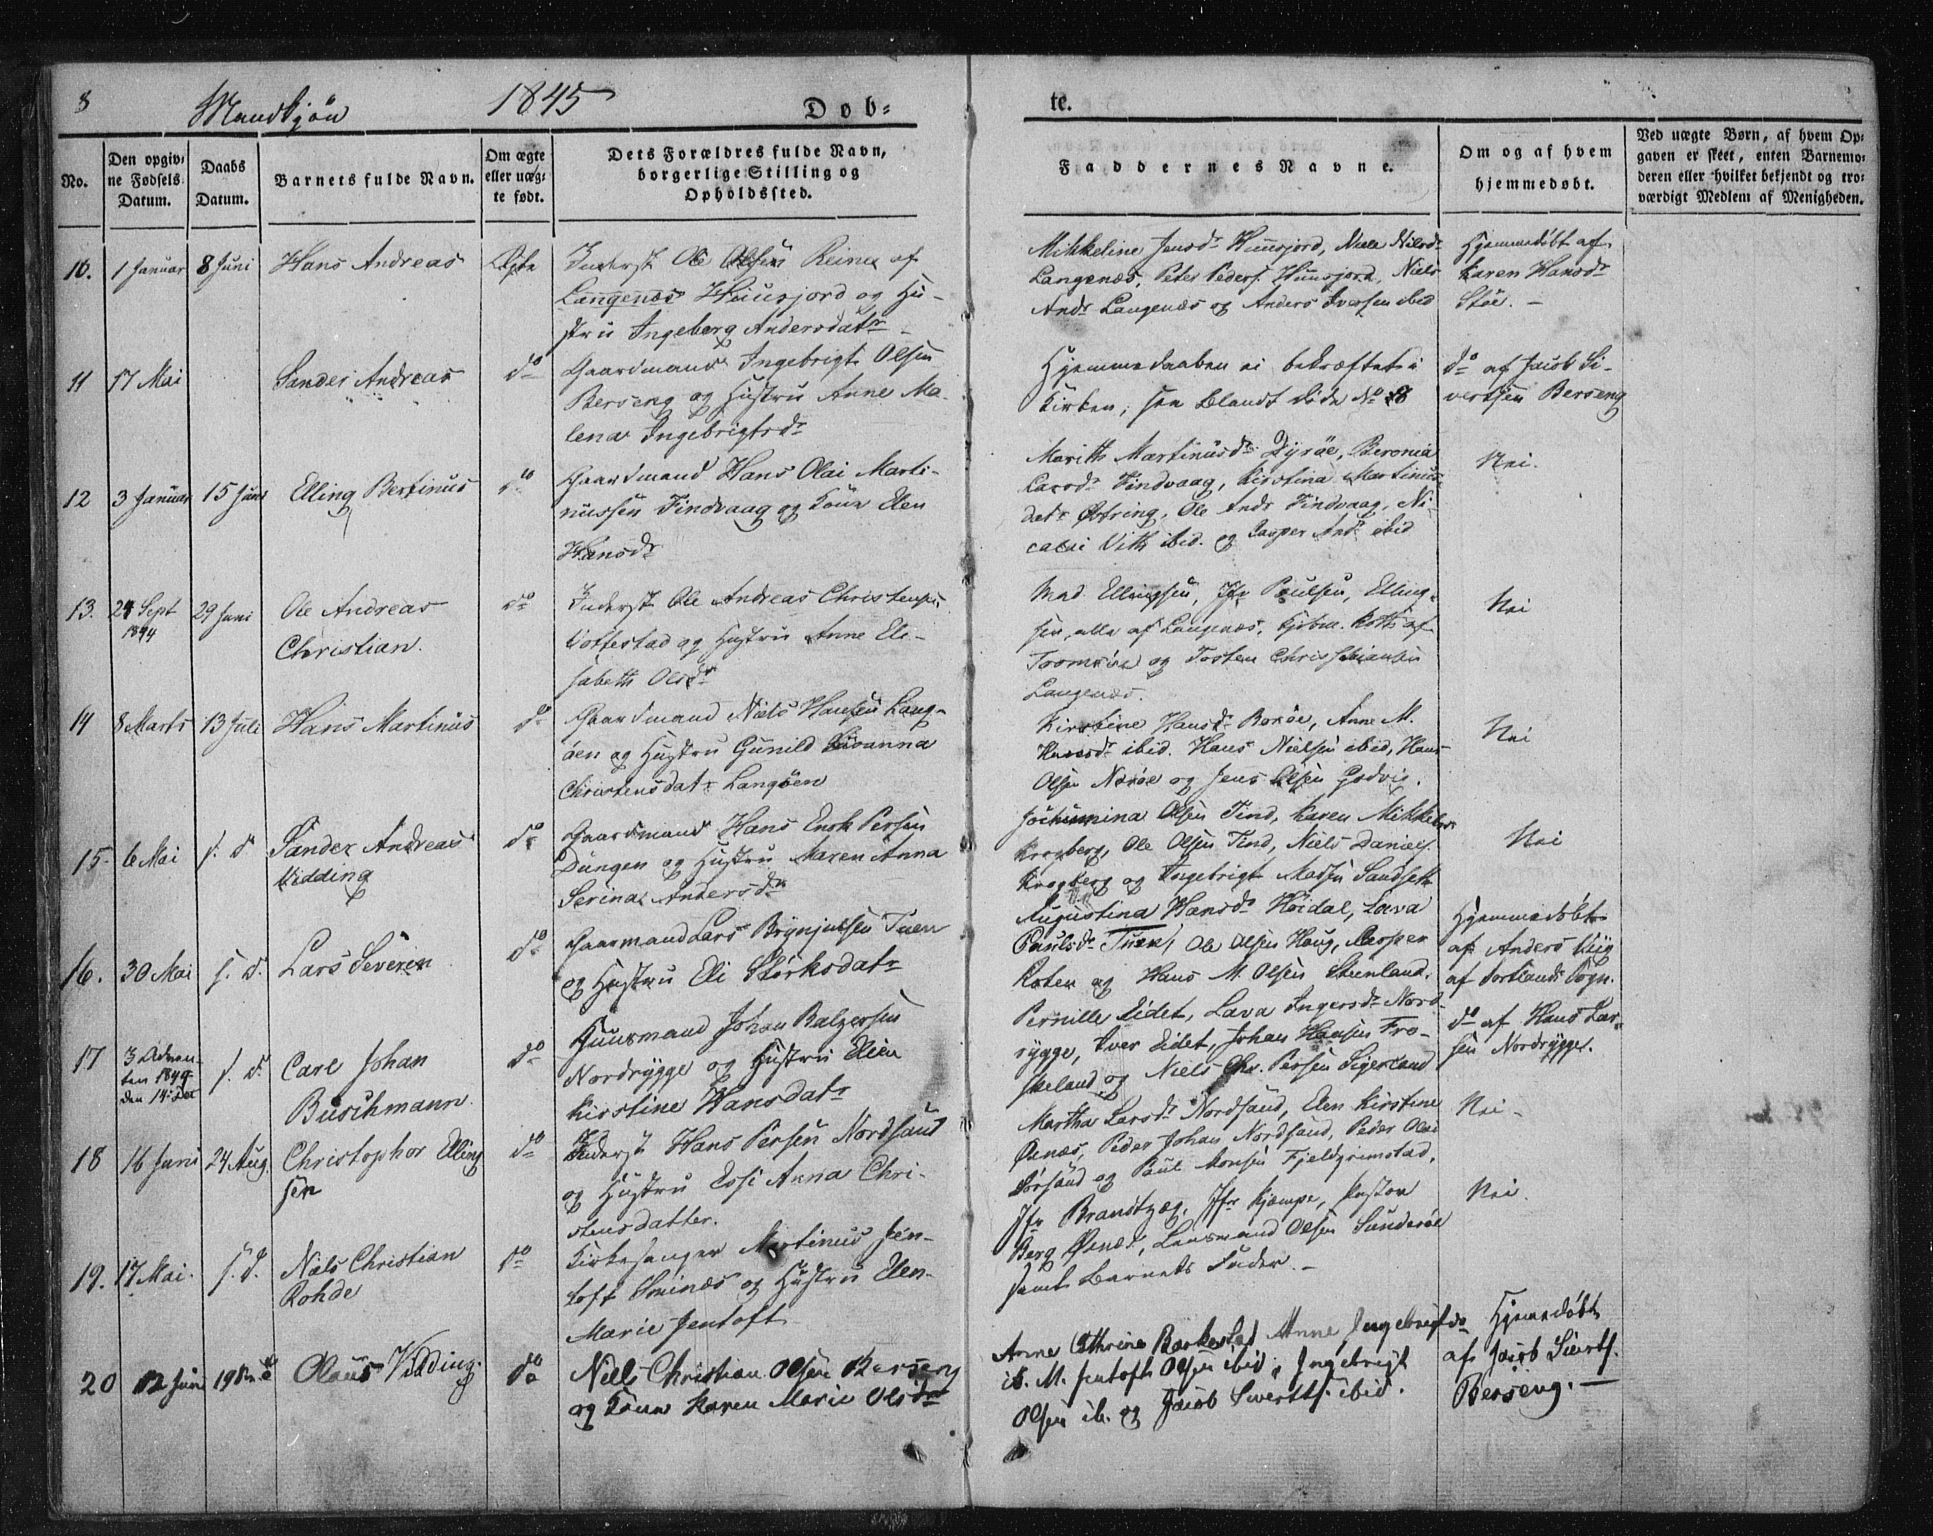 8 Mandkjøn 1845 Døb-
te.
No.
Den opgiv-
ne Fødsels
Datum.
Daabs
Datum.
Barnets fulde Navn.
Om ægte
eller uæg-
te født.
Dets Forældres fulde Navn,
borgerlige Stilling og
Opholdssted.
Faddernes Navne.
Om og af hvem
hjemmedøbt.
Ved uægte Børn, af hvem Op-
gaven er skeet, enten Barnemo-
deren eller hvilket bekjendt og tro-
værdigt Medlem af Menigheden.
10. 1 Januar 8 Juni Hans Andreas Ægte
Inderst Ole Olsen Reinæ af
Langenæs Huusjord og Hu-
stru Ingeberg Andersdatr
Mikkeline Jensdr Huusjord, Niels Nilsdr
Langenæs, Peter Peders. Huusjord, Niels
Andr Langenæs og Anders Iversen ibid
Hjemmedøbt af
Karen Hansdr
Støe. -
11 17 Mai Sander Andreas do
Gaardmand Ingebrigt Olsen
Berseng og Hustru Anne Ma-
lena Ingebrigtsdr
Hjemmedaaben ei bekræftet i
Kirken, see blandt døde No 8
do af Jacob Si-
vertsen Berseng
12 3 Januar 15 Juni Elling Bertinus do
Gaardmand Hans Olai Marti-
nussen Findvaag og Kone Elen
Hansdr
Marith Martinusdr Dyrøe, Beronia
Larsdr Findvaag, Kirstina Martinus-
datr Østring, Ole Andr Findvaag, Ni-
calai Vith ibid. og Casper Andr ibid
Nei.
13. 24 Sept
1844
29 Juni Ole Andreas
Christian. do
Inderst Ole Andreas Christensen
Vottestad og Hustru Anne Eli-
sabeth Olsdr
Mad Ellingsen, Jfr Poulsen, Elling-
sen, alle af Langenæs, Kjøbm. Koth af
Tromsøe og Tosten Christiansen
Langenæs.
Nei
14 8 Marts 13 Juli Hans Martinus do
Gaardmand Niels Hansen Lang-
øen og Hustru Gunild Susanna
Christensdatr Langøen
Kirstine Hansdr Borøe, Anne M.
Hansdr ibid. Hans Nielsen ibid, Hans
Olsen Nærøe og Jens Olsen Godvig.
Nei
15. 6 Mai s. d. Sander Andreas
Vidding do
Gaardmand Hans Enok Persen
Dungen og Hustru Maren Anna
Serina Andersdr
Jochumina Olsen Tind, Karen Mikkelsdr
Krogberg, Ole Olsen Tind, Niels Daniels.
Krogberg og Ingebrigt Madsen Sandseth
Nei
16. 30 Mai s. d. Lars Severin do
Gaarmand Lars Brynjulsen Tuen
og Hustru Eli Størksdatr
Augustina Hansdr Høidal, Lava
Paulsdr Tuen, Ole Olsen Haug, Casper
Roten og Hans M. Olsen Steenland.
Hjemmedøbt
af Anders Viig
af Sortlands Sogn.
17 3 Adven-
ten 1844
den 14: Dec
s. d. Carl Johan
Buschmann do
Huusmand Johan Balzersen
Nordrygge og Hustru Elen
Kirstine Hansdatr
Pernille Eidet, Lava Ingersdr Nord-
rygge, Iver Eidet, Johan Hansen Fro-
skeland og Niels Chr. Persen Sigerland
do af Hans Lar-
sen Nordrygge.
18 16 Juni 24 Aug. Christopher Elling
sen do
Inderst Hans Persen Nordsand
og Hustru Essi Anna Chri-
stensdatter.
Martha Larsdr Nordsand, Elen Kirstine
Øxnæs, Peder Johan Nordsand, Peder Olai
Sørsand og Poul Monsen Fjeldgrimstad.
Nei -
19. 17 Mai. s. d. Niels Christian
Rohde do
Kirkesanger Martinus Jen-
toft Smines og Hustru Elen
Marie Jentoft
Jfr Brandtzæg, Jfr Kjempe, Pastor
Berg Øxnæs, Lensmand Olsen Sunderøe
samt Barnets Fader. -
Nei.
20 12 Juni Olaus Vidding do
Niels Christian Olsen Berseng
og Kone Karen Marie Olsdr
Anne Cathrine Barkestad, Anne Ingebrigtsdr
ib. M. Jentoft Olsen ibid, Ingebrigt
Olsen ib. og Jacob Sivertsf. ibid.
Hjemmedøbt
af Jacob Sivertsf.
Berseng. -